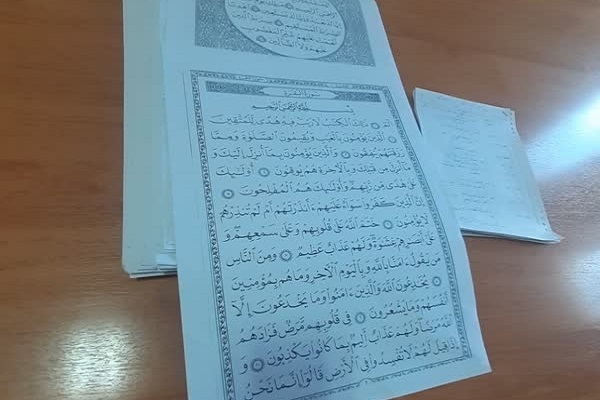 الصِّرَاطَ الْمُسْتَقِيمَ صِرَاطَ الَّذِينَ
أَنْعَمْتَ عَلَيْهِمْ غَيْرِ الْمَغْضُوبِ
عَلَيْهِمْ وَلَا الضَّالِّينَ
سورة البقرة
بِسْمِ اللَّهِ الرَّحْمَٰنِ الرَّحِيمِ
الٓمٓ ۝ ذَٰلِكَ الْكِتَابُ لَارَيْبَ فِيهِ هُدًى لِلْمُتَّقِينَ
الَّذِينَ يُؤْمِنُونَ بِالْغَيْبِ وَيُقِيمُونَ الصَّلَوٰةَ وَمِمَّا
رَزَقْنَاهُمْ يُنْفِقُونَ ۝ وَالَّذِينَ يُؤْمِنُونَ بِمَا أُنْزِلَ إِلَيْكَ وَ
مَا أُنْزِلَ مِنْ قَبْلِكَ وَبِالْآخِرَةِ هُمْ يُوقِنُونَ ۝ أُولَٰئِكَ
عَلَىٰ هُدًى مِنْ رَبِّهِمْ وَأُولَٰئِكَ هُمُ الْمُفْلِحُونَ ۝
إِنَّ الَّذِينَ كَفَرُوا سَوَاءٌ عَلَيْهِمْ ءَأَنْذَرْتَهُمْ أَمْ لَمْ تُنْذِرْهُمْ
لَا يُؤْمِنُونَ ۝ خَتَمَ اللَّهُ عَلَىٰ قُلُوبِهِمْ وَعَلَىٰ سَمْعِهِمْ وَ
عَلَىٰ أَبْصَارِهِمْ غِشَاوَةٌ وَلَهُمْ عَذَابٌ عَظِيمٌ ۝ وَمِنَ النَّاسِ
مَنْ يَقُولُ ءَامَنَّا بِاللَّهِ وَبِالْيَوْمِ الْآخِرِ وَمَا هُمْ بِمُؤْمِنِينَ
۝ يُخَادِعُونَ اللَّهَ وَالَّذِينَ ءَامَنُوا وَمَا يَخْدَعُونَ إِلَّا
أَنْفُسَهُمْ وَمَا يَشْعُرُونَ ۝ فِي قُلُوبِهِمْ مَرَضٌ فَزَادَهُمُ
اللَّهُ مَرَضًا وَلَهُمْ عَذَابٌ أَلِيمٌ بِمَا كَانُوا يَكْذِبُونَ ۝ وَ
إِذَا قِيلَ لَهُمْ لَا تُفْسِدُوا فِي الْأَرْضِ قَالُوا إِنَّمَا نَحْنُ